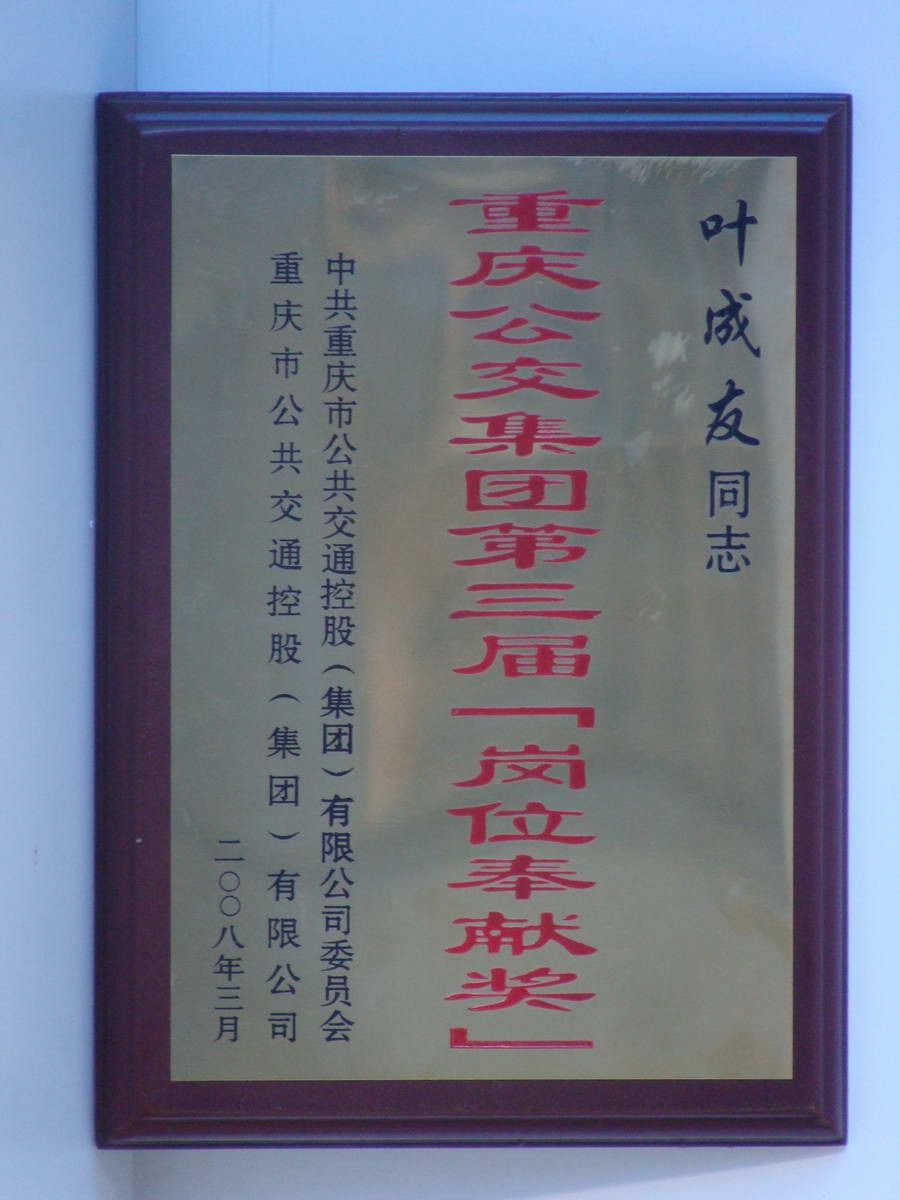 叶成友同志
重庆公交集团第三届「岗位奉献奖」
中共重庆市公共交通控股（集团）有限公司委员会
重庆市公共交通控股（集团）有限公司
二〇〇八年三月